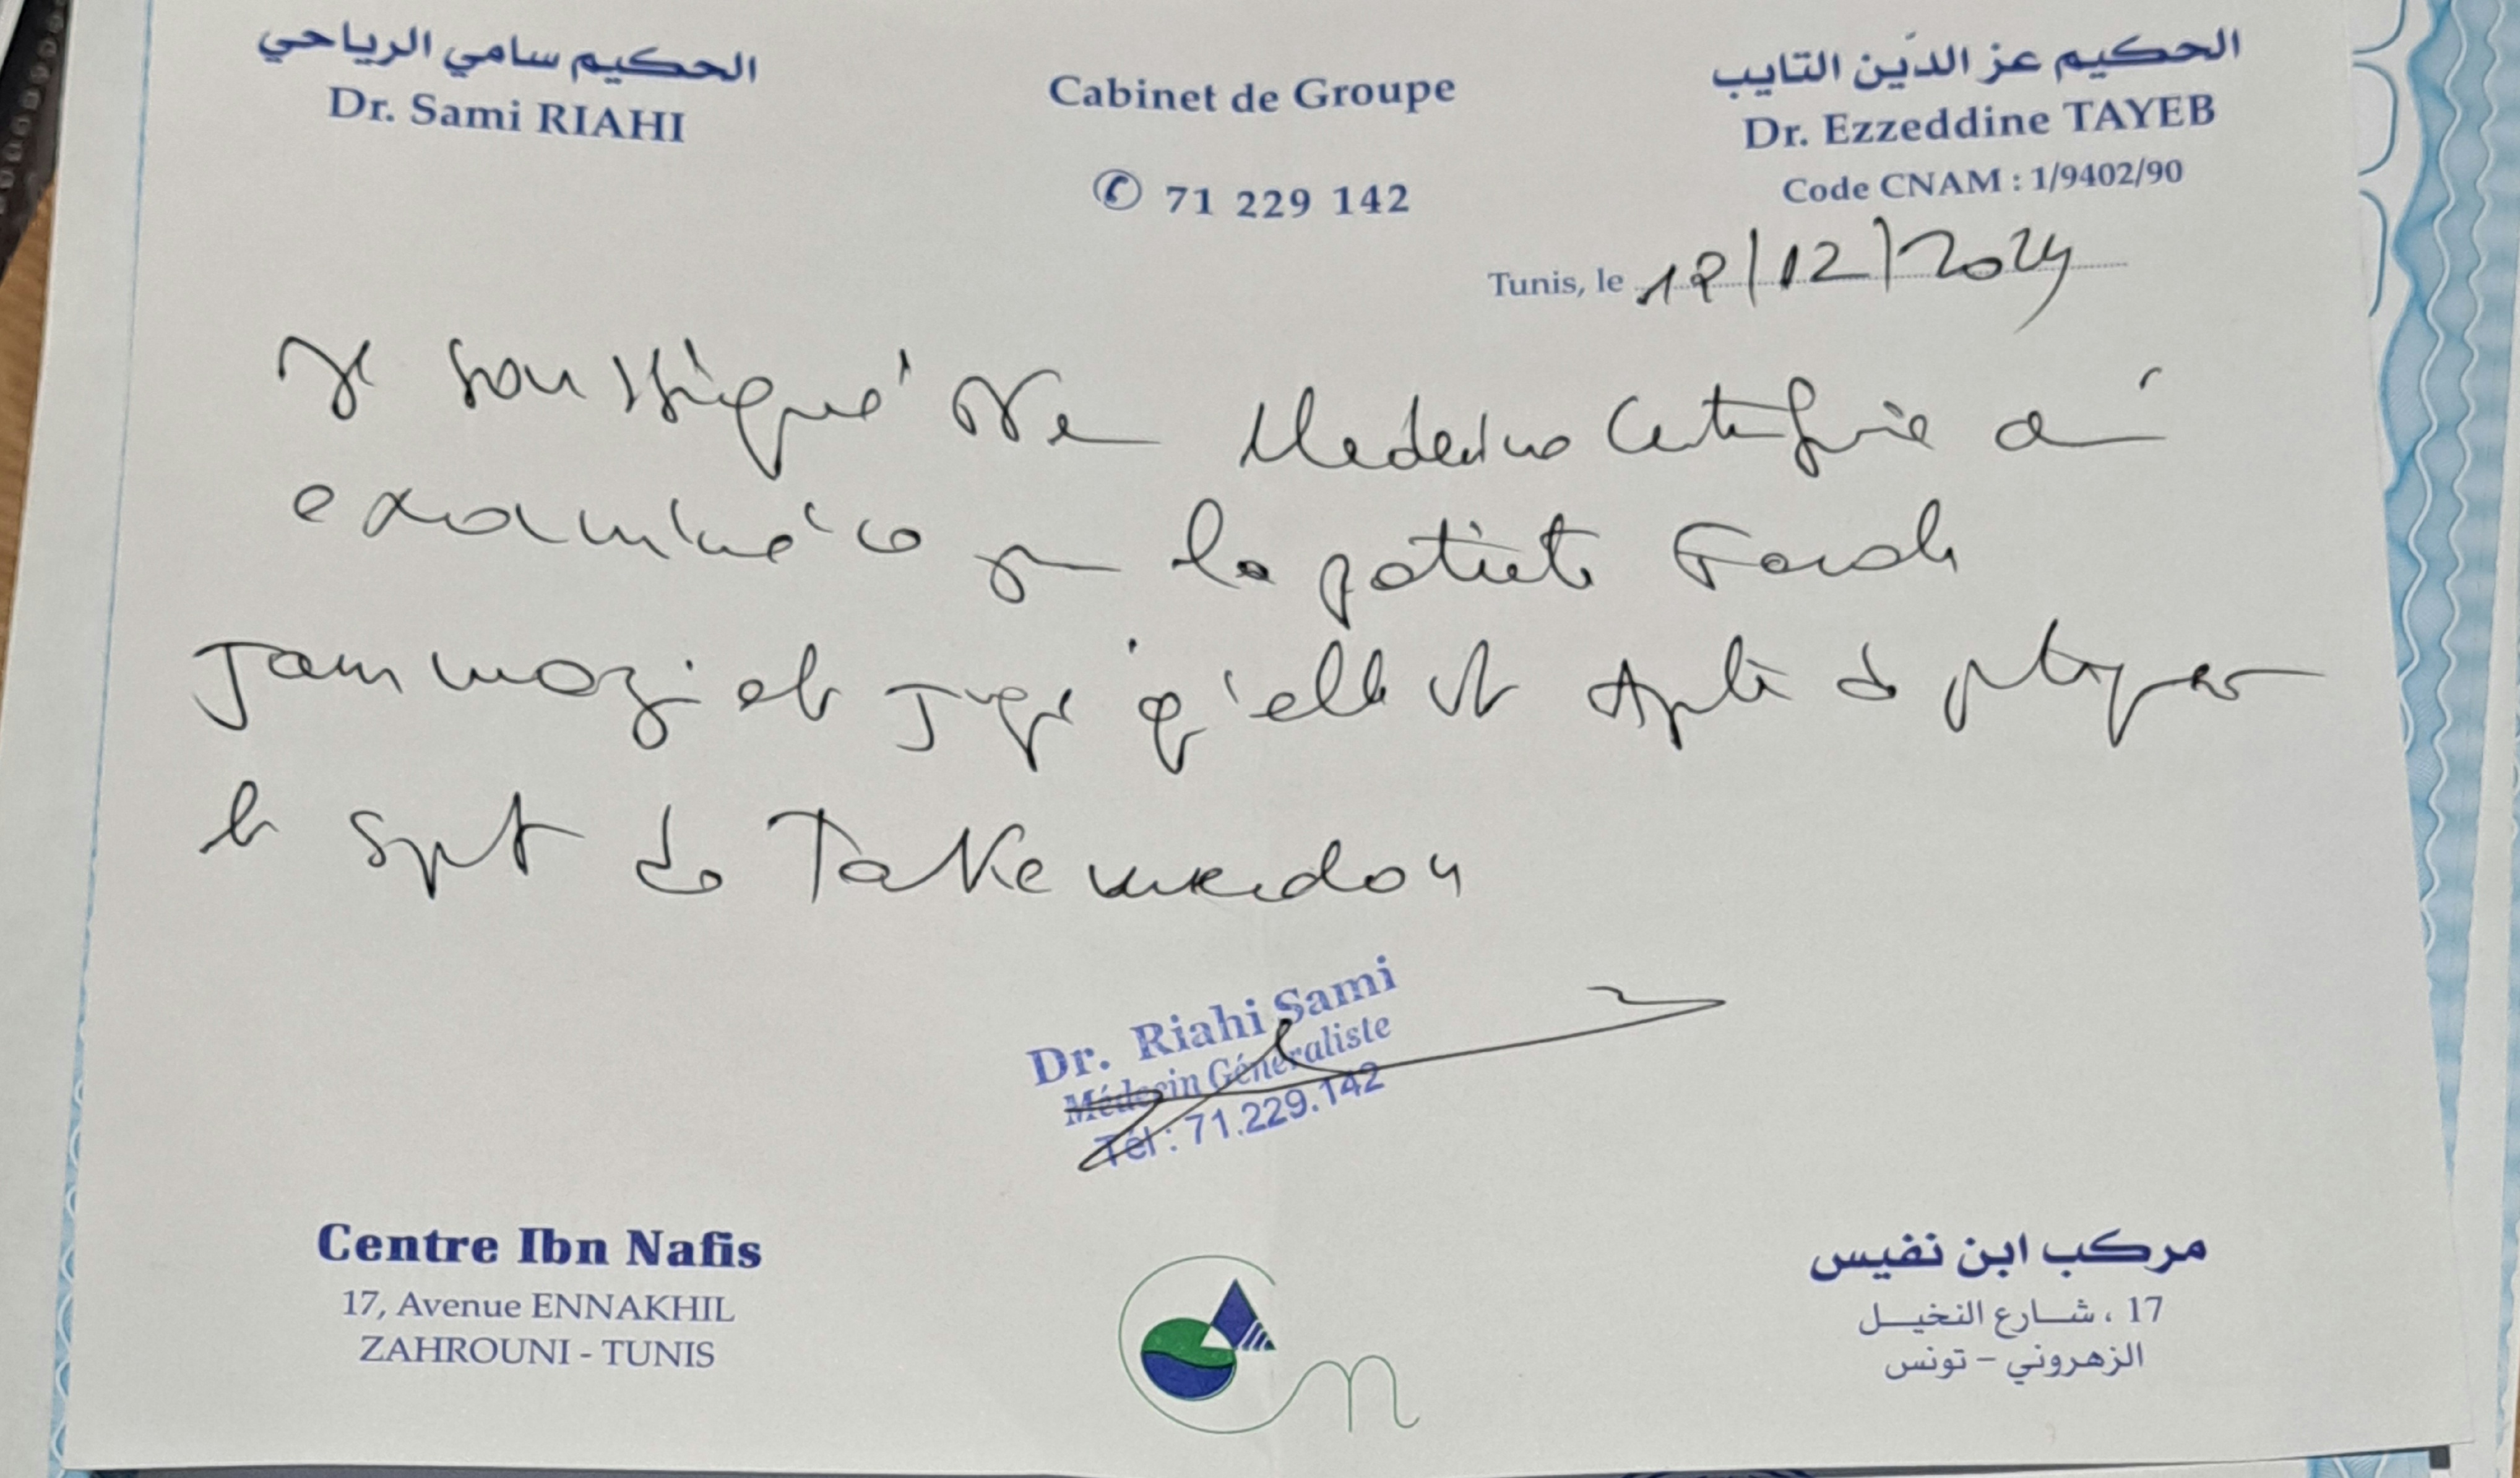 الحكيم سامي الرياحي
Dr. Sami RIAHI
Cabinet de Groupe
✆ 71 229 142
الحكيم عز الدّين التايب
Dr. Ezzeddine TAYEB
Code CNAM : 1/9402/90
Tunis, le 18/12/2024
Je soussigné Dr Medecin Certifie avoir
examiné ce jour la patiente Farah
Jammazi et juge qu'elle est Apte à pratiquer
le sport de Taekwendou
Dr. Riahi Sami
Médecin Généraliste
Tél : 71.229.142
Centre Ibn Nafis
17, Avenue ENNAKHIL
ZAHROUNI - TUNIS
مركب ابن نفيس
17 ، شارع النخيل
الزهروني – تونس